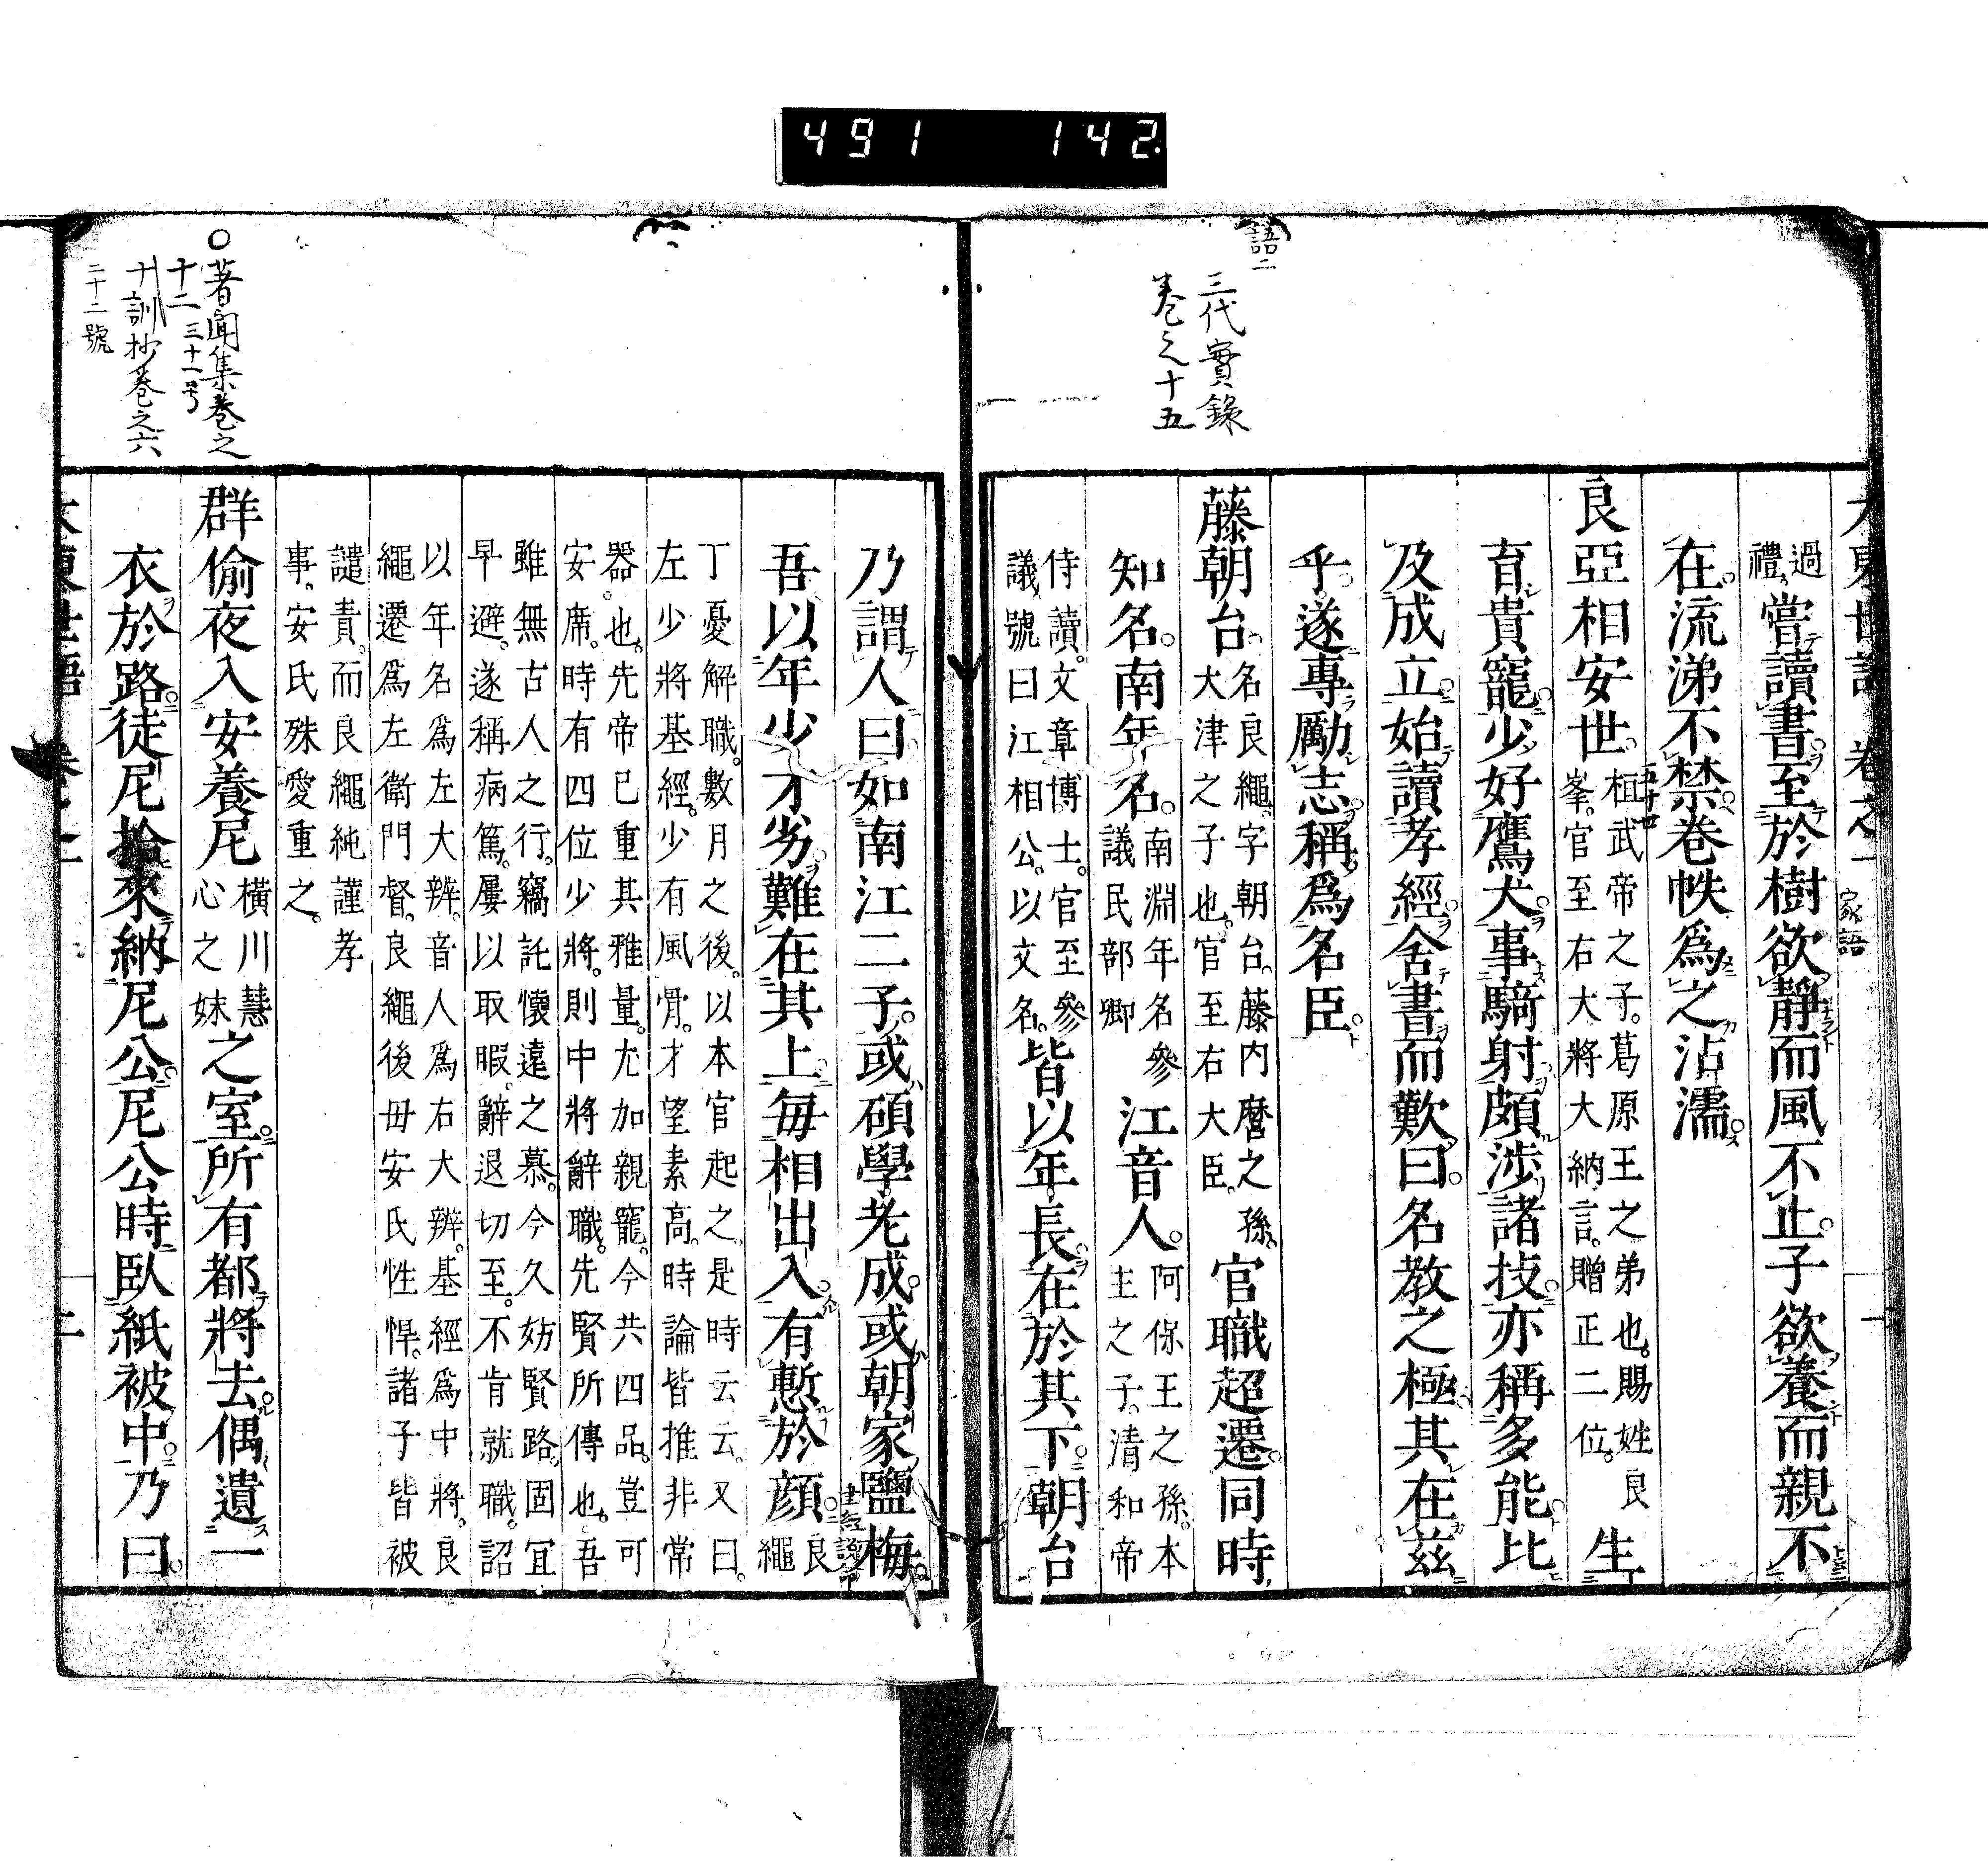 491 142
語二
三代實錄
卷之十五
大東世語 卷之一
家語
過
禮嘗讀書至於樹欲靜而風不止子欲養而親不
在流涕不禁卷帙爲之沾濡
良亞相安世桓武帝之子葛原王之弟也賜姓良
峯官至右大將大納言贈正二位生
五十世
育貴寵少好鷹犬事騎射頗涉諸技亦稱多能比
及成立始讀孝經舍書而歎曰名教之極其在茲
乎遂專勵志稱爲名臣
藤朝台名良繩字朝台藤内麿之孫
大津之子也官至右大臣官職超遷同時
知名南年名南淵年名參
議民部卿江音人阿保王之孫本
主之子清和帝
侍讀文章博士官至參
議號曰江相公以文名皆以年長在於其下朝台
乃謂人曰如南江二子或碩學老成或朝家鹽梅
吾以年少才劣難在其上每相出入有慙於顔良
繩
丁憂解職數月之後以本官起之是時云云又曰
左少將基經少有風骨才望素高時論皆推非常
器也先帝已重其雅量尤加親寵今共四品豈可
安席時有四位少將則中將辭職先賢所傳也吾
雖無古人之行竊託懷遠之慕今久妨賢路固冝
早避遂稱病篤屢以取暇辭退切至不肯就職詔
以年名爲左大辨音人爲右大辨基經爲中將良
繩遷爲左衛門督良繩後毋安氏性悍諸子皆被
譴責而良繩純謹孝
事安氏殊愛重之
群偷夜入安養尼横川慧
心之妹之室所有都將去偶遺一
衣於路徒尼拾來納尼公尼公時臥紙被中乃曰
○著聞集卷之
十二 三十一号
十訓抄卷之六
二十二號